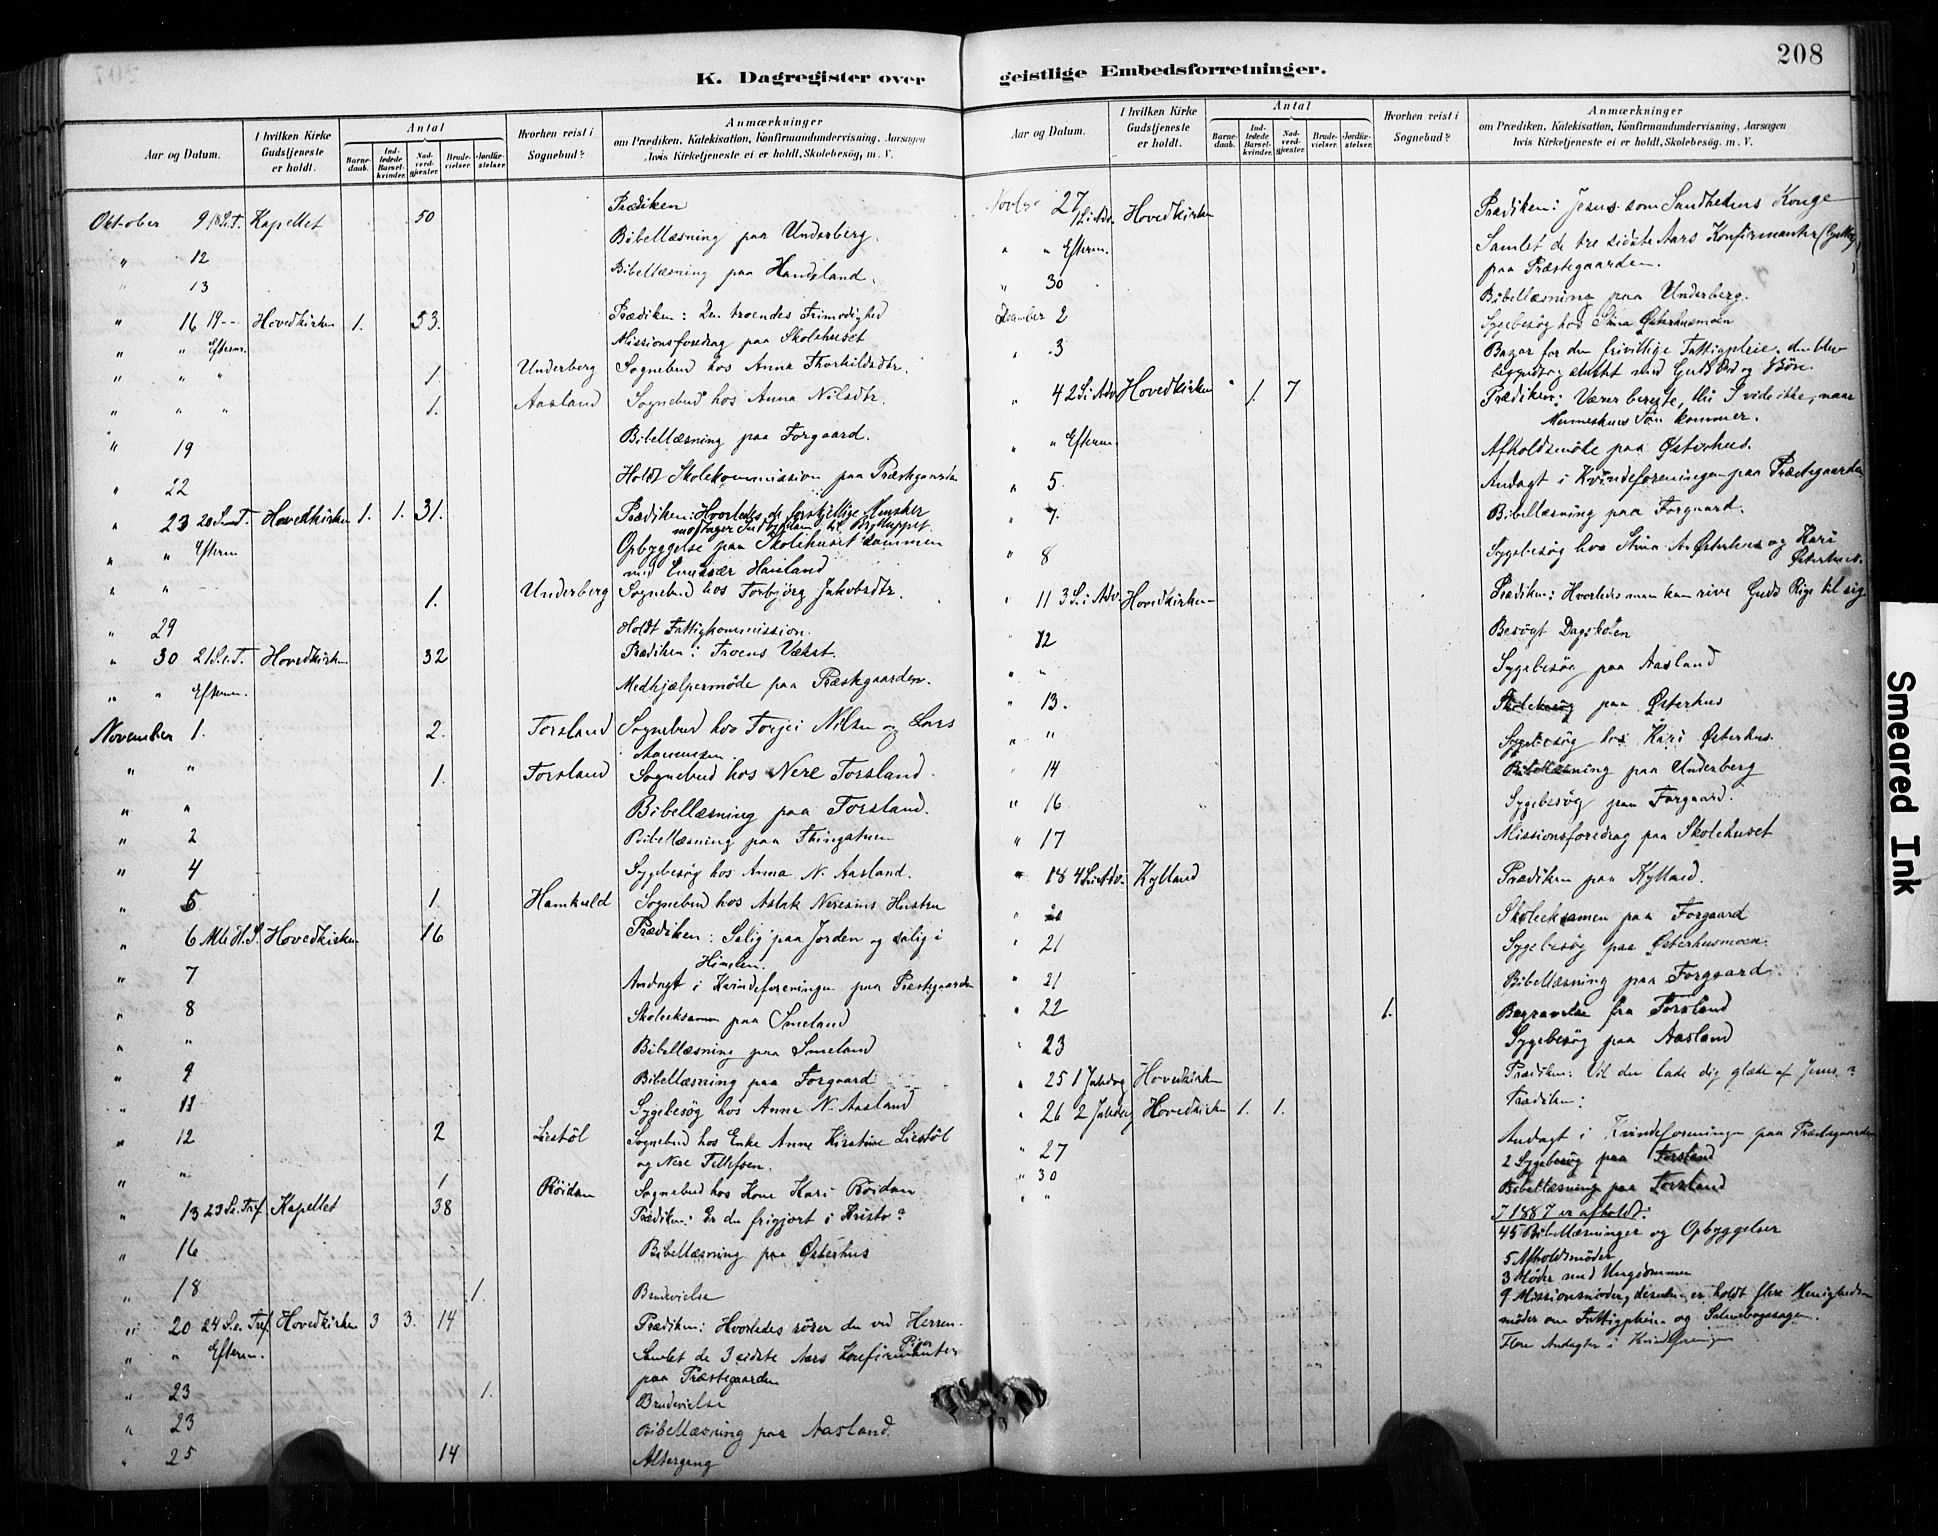 208
K. Dagregister over geistlige Embedsforretninger.
Aar og Datum.
I hvilken Kirke Gudstjeneste er holdt.
Antal
Barnedaab.
Indledede Barselkvinder.
Nadverdgjæster.
Brudevielser.
Jordfæstelser.
Hvorhen reist i Sognebud?
Anmærkninger
om Prædiken, Katekisation, Konfirmandundervisning, Aarsagen
hvis Kirketjeneste ei er holdt, Skolebesøg, m. V.
Oktober 9 18 S.e.T. Kapellet 50 Prædiken
" 12 Bibellæsning paa Underberg.
" 13 Bibellæsning paa Handeland.
" 16 19 -- Hovedkirken 1. 53. Prædiken: Den troendes Frimodighed
" " Efterm. Missionsforedrag paa Skolehuset
" " " 1. Underberg Sognebud hos Anna Thorkildsdtr.
" " " 1. Aasland Sognebud hos Anna Nilsdtr.
" 19 Bibellæsning paa Forgaard.
" 22 Holdt Skolekommission paa Præstegaarden
" 23 20 S.e.T. Hovedkirken 1. 1. 31. Prædiken: Hvorledes de forskjellige Mensker
modtager Indbydelsen til Brylluppet.
" " Efterm Opbyggelse paa Skolehuset sammen
med Emissær Hausland
" " 1. Underberg Sognebud hos Torbjörg Jakobsdtr.
" 29 Holdt Fattigkommission.
" 30 21 S.e.T. Hovedkirken 32 Prædiken: Troens Vækst.
" " Efterm. Medhjælpermöde paa Præstegaarden.
November 1. 2. Torsland Sognebud hos Torjei Nilsen og Lars
Aanensen
" " 1. Torsland Sognebud hos Nere Torsland.
" " Bibellæsning paa Torsland.
" 2 Bibellæsning paa Thingstuen
" 4 Sygebesøg hos Anna N. Aasland.
" 5 1. Hamkuld Sognebud hos Aslak Neresens Hustru
" 6 Alle H. S. Hovedkirken 16 Prædiken: Salig paa Jorden og salig i
Himlen.
" 7 Andagt i Kvindeforeningen paa Præstegaarden
" 8 Skoleeksamen paa Smeland
" " Bibellæsning paa Smeland
" 9 Bibellæsning paa Forgaard
" 11 Sygebesøg hos Anna N. Aasland
" 12 2 Liestöl Sognebud hos Enke Anne Kirstine Liestöl
og Nere Tellefsen.
" " 1 Röidan Sognebud hos Kone Kari Röidan
" 13 23 S.e. Tref. Kapellet 38 Prædiken: Er du frigjort i Kristo?
" 16 Bibellæsning paa Østerhus
" 18 1. Brudevielse
" 20 24 S.e. Tref. Hovedkirken 3 3. 14 Prædiken: Hvorledes rörer du ved Herren.
" " Efterm. Samlet de 3 sidste Aars Konfirmanter Piger
paa Præstegaarden
" 23 1. Brudevielse
" 23 Bibellæsning paa Aasland.
" 25 14 Altergang
Aar og Datum.
I hvilken Kirke Gudstjeneste er holdt.
Antal
Barnedaab.
Indledede Barselkvinder.
Nadverdgjæster.
Brudevielser.
Jordfæstelser.
Hvorhen reist i Sognebud?
Anmærkninger
om Prædiken, Katekisation, Konfirmandundervisning, Aarsagen
hvis Kirketjeneste ei er holdt, Skolebesøg, m. V.
Novbr 27 1 S. i Adv. Hovedkirken Prædiken: Jesus som Sandhedens Konge
" " Efterm. Samlet de tre sidste Aars Konfirmanter
paa Præstegaarden.
" 30 Bibellæsning paa Underberg.
December 2 Sygebesøg hos Stina Østerhusmoen
" 3 Bazar for den frivillige Fattigpleie, den blev
begyndt og sluttet med Guds Ord og Bön.
" 4 2 S. i Adv. Hovedkirken " 1. 7 Prædiken: Værer berede, thi I vide ikke, naar
Menneskens Sön kommer.
" " Efterm. Afholdsmöte paa Østerhus.
" 5 Andagt i Kvindeforeningen paa Præstegaarden
" 7. Bibellæsning paa Forgaard.
" 8 Sygebesøg hos Stina A. Østerhus og Kari
Østerhus.
" 11 3 S. i Adv. Hovedkirken Prædiken: Hvorledes man kan rive Guds Rige til sig
" 12 Besøgt Dagskolen
" " Sygebesøg paa Aasland
" 13. Skolebesøg paa Østerhus
" " Sygebesøg hos Kari Østerhus.
" 14 Bibellæsning paa Underberg
" 16 Sygebesøg paa Forgaard.
" 17 Missionsforedrag paa Skolehuset
" 18 4 S. i Adv. Kylland Prædiken paa Kylland.
" Skoleeksamen paa Forgaard
" 21 Sygebesøg paa Østerhusmoen.
" 21 Bibellæsning paa Forgaard.
" 22 1. Begravelse fra Torsland
" 23 Sygebesøg paa Aasland
" 25 1 Juledag Hovedkirken Prædiken: Vil du lade dig glæde af Jesus?
" 26 2 Juledag Hovedkirken 1. 1. Prædiken:
" 27 Andagt i Kvindeforeningen paa Præstegaarden
" 30 2 Sygebesøg paa Torsland
" " Bibellæsning paa Torsland
I 1887 er afholdt:
45 Bibellæsninger og Opbyggelser
5 Afholdsmöder
3 Möder med Ungdommen
9 Missionsmöder, desuden er holdt flere Menigheds
möder om Fattigpleien og Salmebogssagen.
Flere Andagter i Kvindeforeningen
Smeared Ink